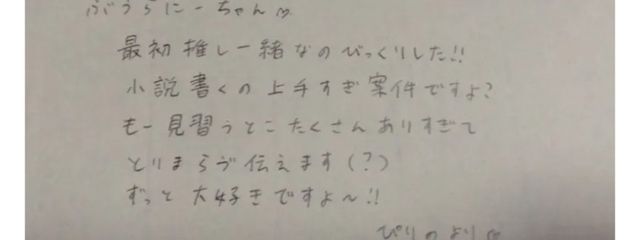 ぶうらにーちゃん♡
最初推し一緒なのびっくりした!!
小説書くの上手すぎ案件ですよ?
もー見習うとこたくさんありすぎて
とりまラヴ伝えます(?)
ずっと大好きですよ〜!!
ぴりのより♡